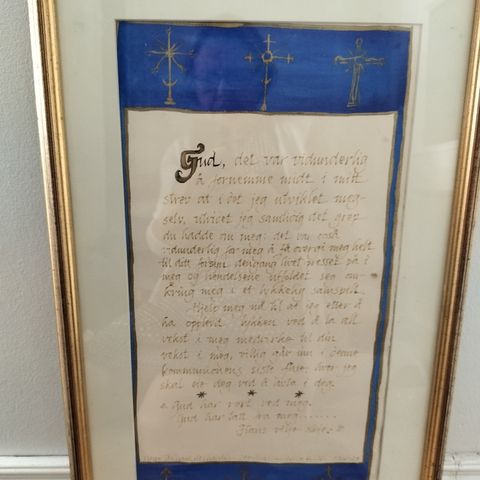 Gud, det var vidunderlig
å fornemme midt i mitt
strev at i det jeg utviklet meg-
selv, utvidet jeg samtidig det grep
du hadde om meg; det var også
vidunderlig for meg å få overgi meg helt
til ditt forsyn dengang livet presset på i
meg og hendelsene utfoldet seg om-
kring meg i et lykkelig samspill.
Hjelp meg nå til at jeg etter å
ha opplevd lykken ved å la all
vekst i meg medvirke til din
vekst i meg, villig går inn i denne
kommunionens siste fase, hvor jeg
skal eie deg ved å avta i deg.
Gud har vært ved meg.
Gud har tatt fra meg.......